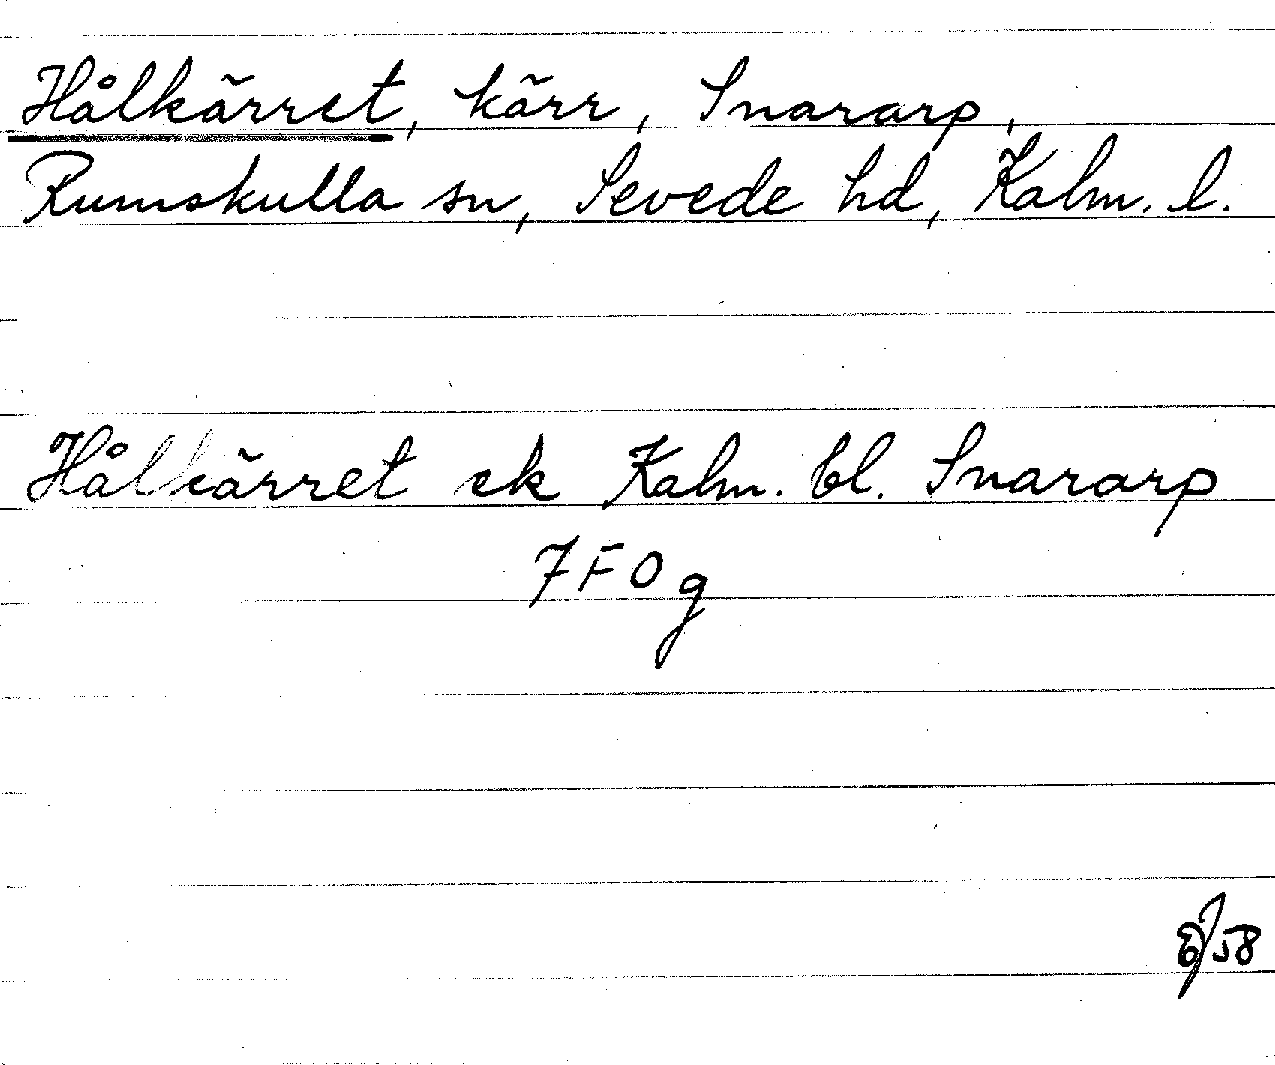 Hålkärret, kärr, Snararp,
Rumskulla sn, Sevede hd, Kalm. l.
Hålkärret ek Kalm. bl. Snararp
7F0g